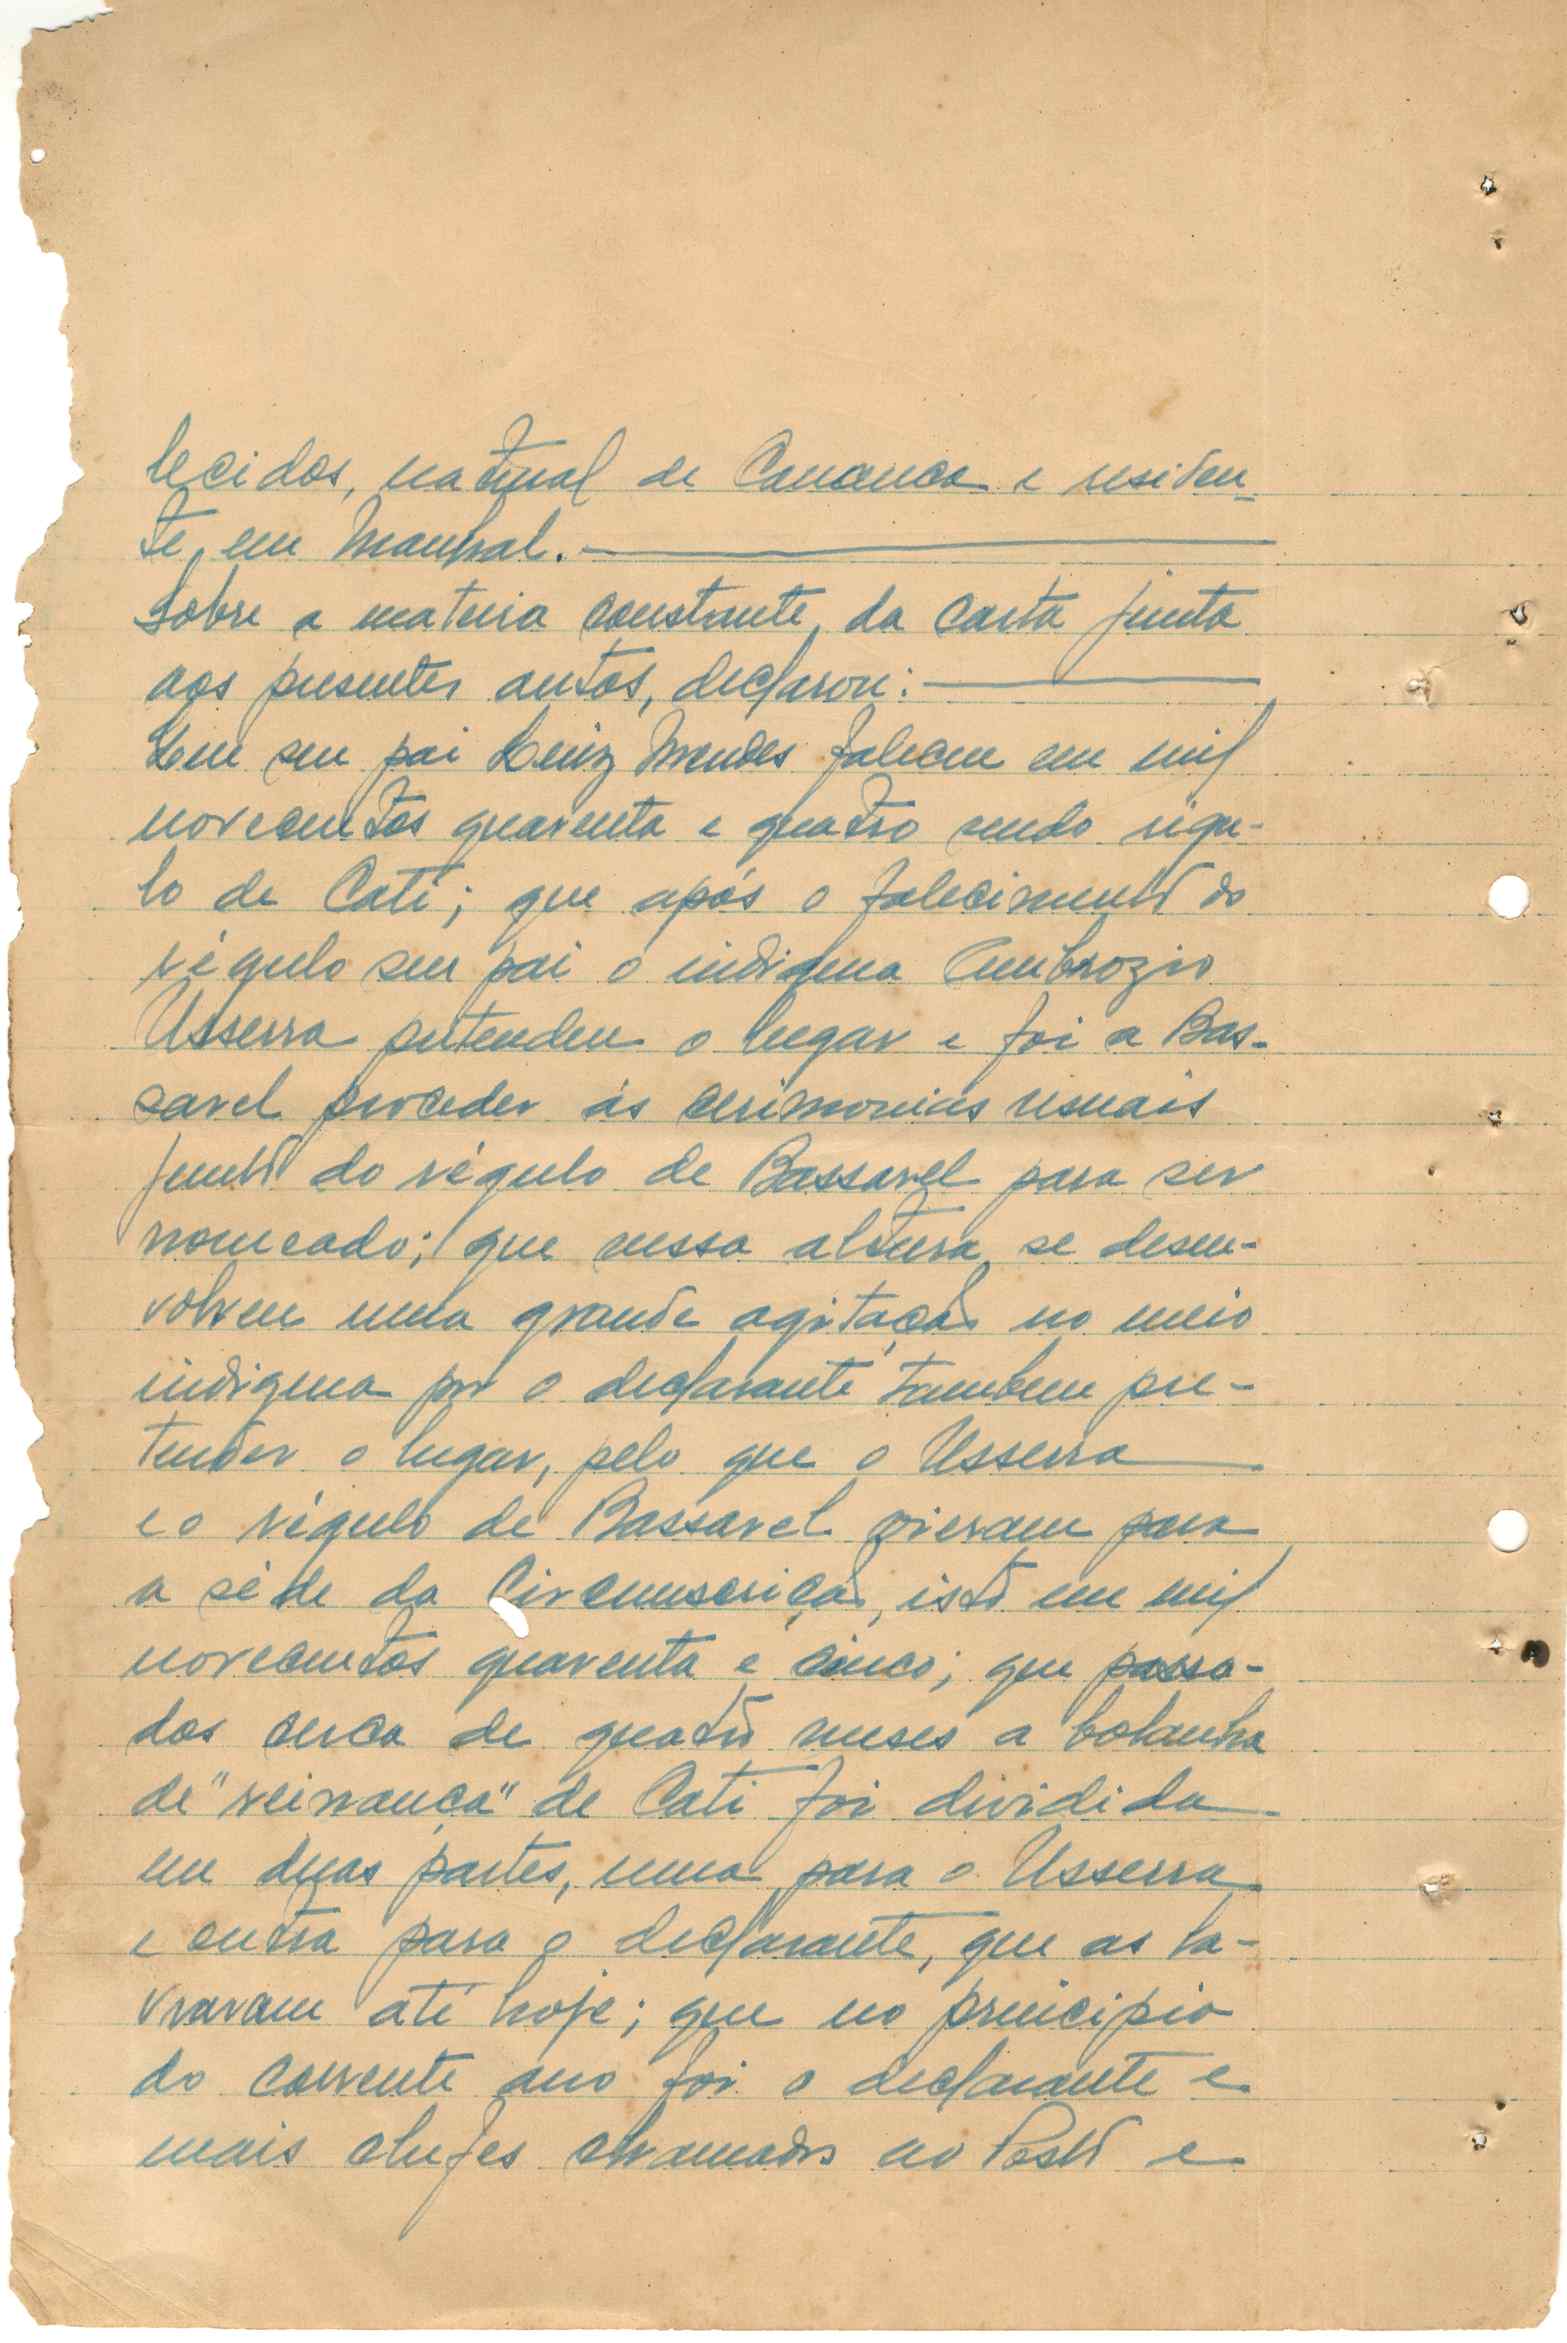 lecidos, natural de Cananca e residen-
te, em Manhal.
Sobre a materia constante, da carta junta
aos presentes autos, declarou:
Que seu pai Luiz Mendes faleceu em mil
novecentos quarenta e quatro sendo régu-
lo de Cati; que após o falecimento do
régulo seu pai o indigena Ambrozio
Usserra pretendeu o lugar e foi a Bas-
sarel proceder ás cerimonias usuais
junto do régulo de Bassarel para ser
nomeado; que nessa altura se desen-
volveu uma grande agitação no meio
indigena por o declarante tambem pre-
tender o lugar, pelo que o Usserra
e o régulo de Bassarel vieram para
a séde da Circunscrição, isto em mil
novecentos quarenta e cinco; que passa-
dos cerca de quatro meses a bolanha
de "reinança" de Cati foi dividida
em duas partes, uma para o Usserra
e outra para o declarante, que as la-
vraram até hoje; que no principio
do corrente ano foi o declarante e
mais chefes chamados ao Posto e